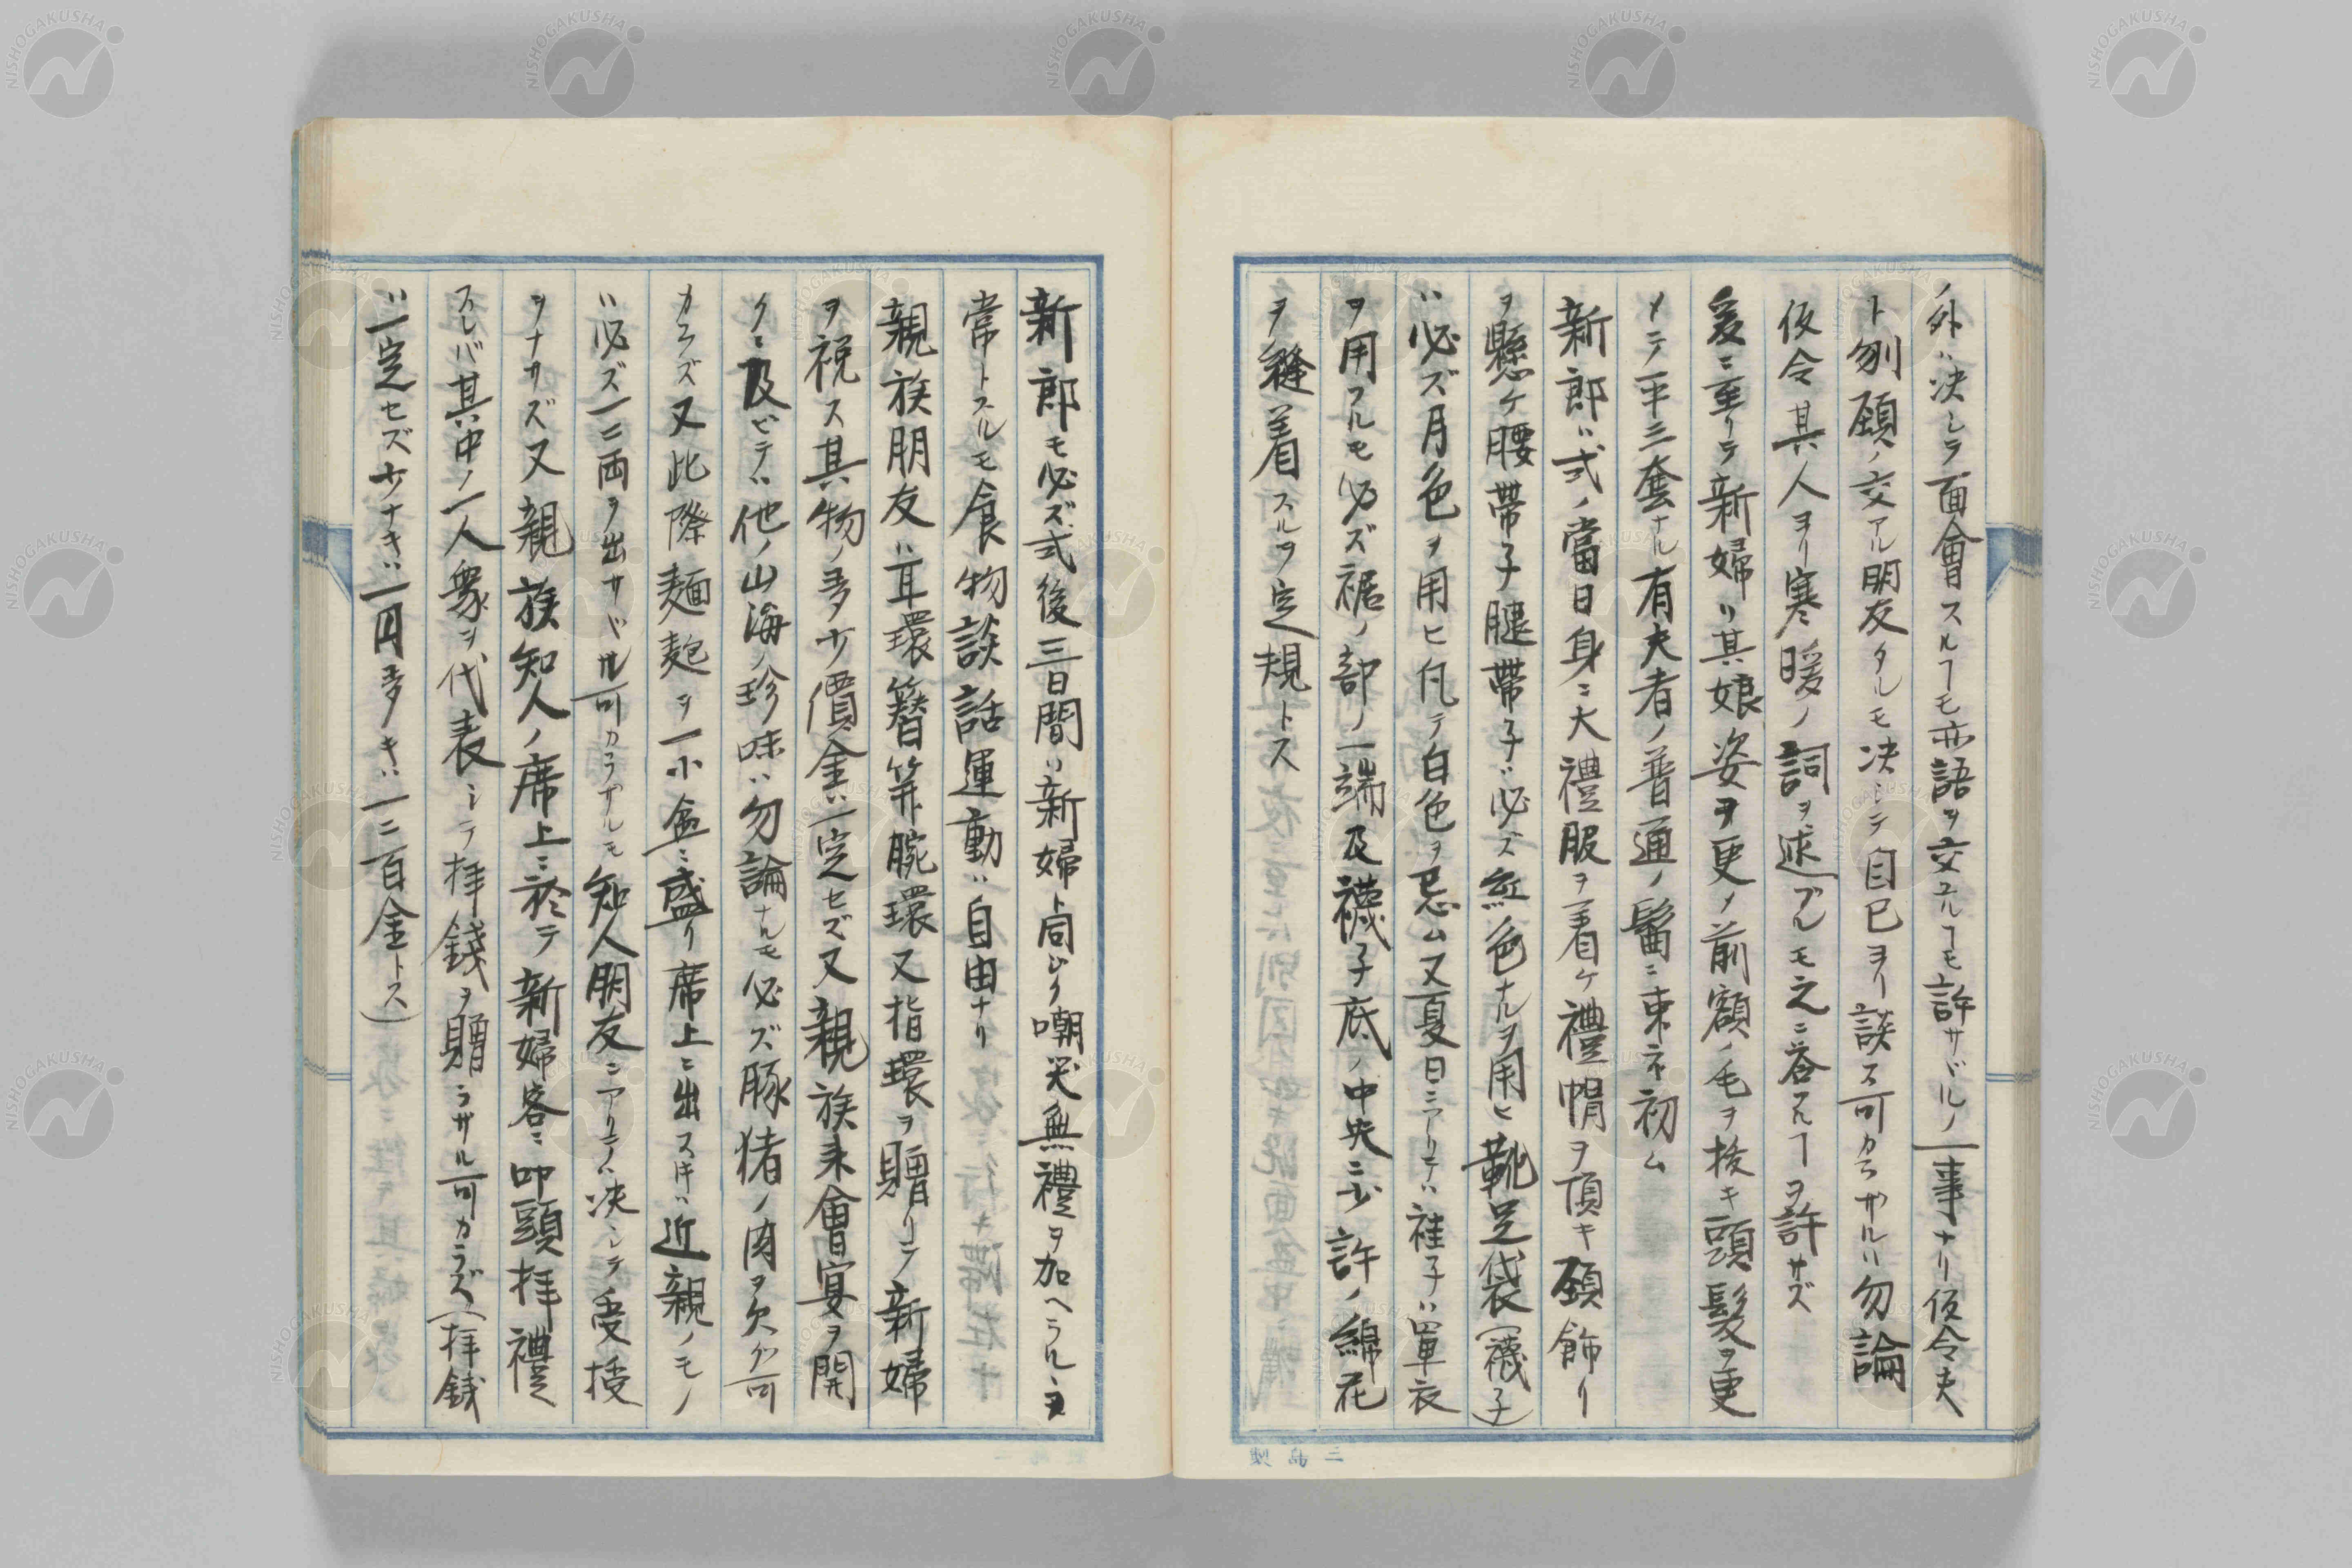 ノ外ハ决シテ面會スルヿモ亦語ヲ交ユルヿモ許サヾルノ一事ナリ仮令夫
ト刎頸ノ交アル朋友タルモ决シテ自己ヨリ談ス可カラザルハ勿論
仮令其人ヨリ寒暖ノ詞ヲ述ブルモ之ニ答フルヿヲ許サズ
爰ニ至リテ新婦ハ其娘姿ヲ更メ前額ノ毛ヲ抜キ頭髪ヲ更
メテ一平三套ナル有夫者ノ普通ノ髷ニ束ネ初ム
新郎ハ式ノ當日身ニ大禮服ヲ着ケ禮帽ヲ頂キ頸飾リ
ヲ懸ケ腰帶子腱帶子ハ必ズ紅色ナルヲ用ヒ靴足袋(襪子)
ハ必ズ月色ヲ用ヒ凡テ白色ヲ忌ム又夏日ニアリテハ袿子ハ單衣
ヲ用フルモ必ズ裾ノ部ノ一端及襪子底ノ中央ニ少許ノ綿花
ヲ縫着スルヲ定規トス
新郎モ必ズ式後三日間ハ新婦ト同ジク嘲笑無禮ヲ加ヘラルヽヲ
常トスルモ食物談話運動ハ自由ナリ
親族朋友ハ耳環簪笄腕環又指環ヲ贈リテ新婦
ヲ祝ス其物ノ多少價金ハ一定セズ又親族来會宴ヲ開
クニ及ビテハ他ノ山海ノ珍味ハ勿論ナルモ必ズ豚猪ノ肉ヲ欠グ可
カラズ又此際麺麭ヲ一小盒ニ盛リ席上ニ出ス片ハ近親ノモノ
ハ必ズ一二両ヲ出サヾル可カラザルモ知人朋友ニアリテハ决シテ受授
ヲナサズ又親族知人ノ席上ニ於テ新婦客ニ叩頭拝禮
スレバ其中ノ一人衆ヲ代表シテ拝錢ヲ贈ラザル可カラズ(拝錢
ハ一定セズ少ナキハ一円多キハ一二百金トス)